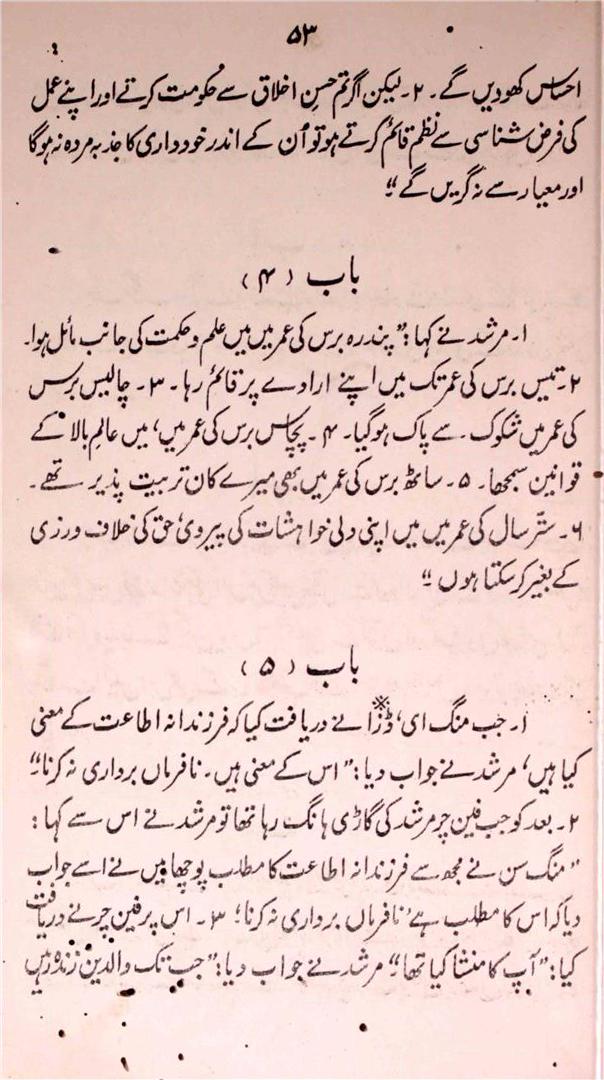 ۵۳
احساس کھودیں گے۔ ۲۔ لیکن اگر تم حسنِ اخلاق سے حکومت کرتے اور اپنے عمل
کی فرض شناسی سے نظم قائم کرتے ہو تو اُن کے اندر خودداری کا جذبہ مردہ نہ ہوگا
اور معیار سے نہ گریں گے“
باب (۴)
۱۔ مرشد نے کہا: ”پندرہ برس کی عمر میں میں علم و حکمت کی جانب مائل ہوا۔
۲۔ تیس برس کی عمر تک میں اپنے ارادے پر قائم رہا۔ ۳۔ چالیس برس
کی عمر میں شکوک سے پاک ہوگیا۔ ۴۔ پچاس برس کی عمر میں، میں عالمِ بالا کے
قوانین سمجھا۔ ۵۔ ساٹھ برس کی عمر میں بھی میرے کان تربیت پذیر تھے۔
۶۔ ستّر سال کی عمر میں میں اپنی دلی خواہشات کی پیرویٔ حق کی خلاف ورزی
کے بغیر کر سکتا ہوں“
باب (۵)
۱۔ جب منگ ای، ڈزا※ نے دریافت کیا کہ فرزندانہ اطاعت کے معنی
کیا ہیں، مرشد نے جواب دیا: ”اس کے معنی ہیں۔ نافرماں برداری نہ کرنا“
۲۔ بعد کو جب فین چر مرشد کی گاڑی ہانک رہا تھا تو مرشد نے اس سے کہا:
”منگ سن نے مجھ سے فرزندانہ اطاعت کا مطلب پوچھا میں نے اسے جواب
دیا کہ اس کا مطلب ہے، نافرماں برداری نہ کرنا، ۳۔ اس پر فین چر نے دریافت
کیا: ”آپ کا منشا کیا تھا“ مرشد نے جواب دیا: ”جب تک والدین زندہ رہیں